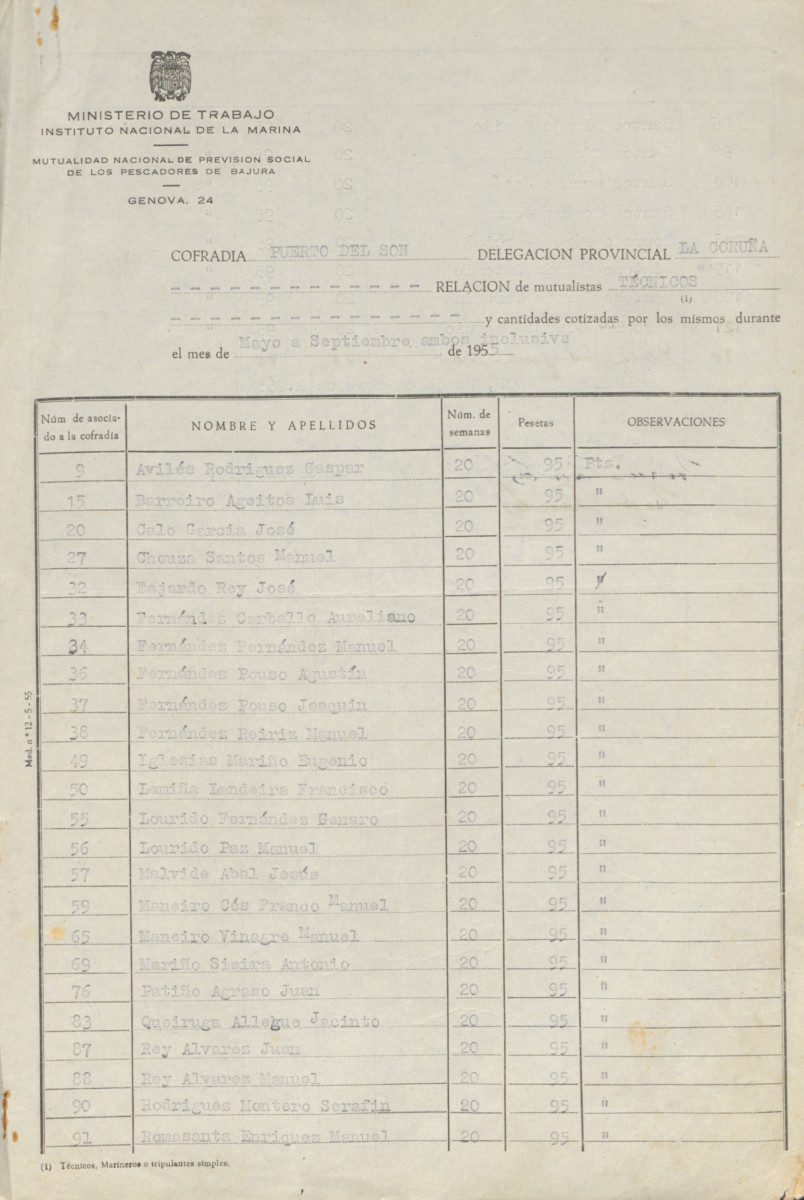 MINISTERIO DE TRABAJO
INSTITUTO NACIONAL DE LA MARINA
MUTUALIDAD NACIONAL DE PREVISION SOCIAL
DE LOS PESCADORES DE BAJURA
GENOVA, 24
COFRADIA PUERTO DEL SON DELEGACION PROVINCIAL LA CORUÑA
RELACION de mutualistas TÉCNICOS
(1)
y cantidades cotizadas por los mismos durante
el mes de Mayo a Septiembre ambos inclusive de 1955
Núm de asocia-do a la cofradía NOMBRE Y APELLIDOS Núm. de semanas Pesetas OBSERVACIONES
9 Avilés Rodriguez Gaspar 20 95 Pts.
15 Barreiro Ageitos Luis 20 95 "
20 Calo Garcia José 20 95 "
27 Chouza Santos Manuel 20 95 "
32 Fajardo Rey José 20 95 "
33 Fernández Carballo Aureliano 20 95 "
34 Fernández Fernández Manuel 20 95 "
36 Fernández Pouso Agustín 20 95 "
37 Fernández Pouso Joaquin 20 95 "
38 Fernández Reiriz Manuel 20 95 "
49 Iglesias Mariño Eugenio 20 95 "
50 Lamiña Landeira Francisco 20 95 "
55 Lourido Fernández Genaro 20 95 "
56 Lourido Paz Manuel 20 95 "
57 Malvide Abal Jesús 20 95 "
59 Maneiro Cés Franco Manuel 20 95 "
65 Maneiro Vinagre Manuel 20 95 "
69 Mariño Sieira Antonio 20 95 "
76 Patiño Agraso Juan 20 95 "
83 Queiruga Allegue Jacinto 20 95 "
87 Rey Alvarez Juan 20 95 "
88 Rey Alvarez Manuel 20 95 "
90 Rodriguez Montero Serafin 20 95 "
91 Romasanta Enriquez Manuel 20 95 "
Mod. n.º 12 - 5 - 55
(1) Técnicos, Marineros o tripulantes simples.